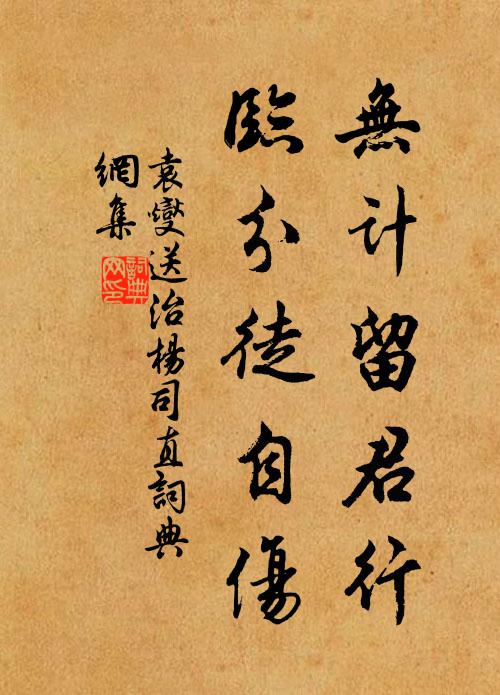 無计留君行
臨分徒自傷
袁燮送治楊司直詞典
網集
詞典
网印